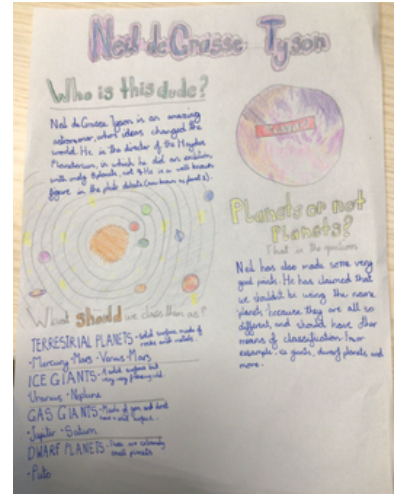 Neil de Grasse Tyson
Who is this dude?
Neil de Grasse Tyson is an amazing
astronomer, whos ideas changed the
world. He is the director of the Hayden
Planetarium, in which he did an exhibition
with only 8 planets, not 9. He is a well known
figure in the pluto debate (now known as planet x).
What should we class them as?
TERRESTRIAL PLANETS - solid surface made of
rocks and metals.
- Mercury - Mars - Venus - Mars
ICE GIANTS - A solid surface but
very very
- Uranus - Neptune
GAS GIANTS - Made of gas and
have a surface.
- Jupiter - Saturn
DWARF PLANETS - These are extremely
small planets
- Pluto
Planets or not
Planets?
That is the question
Neil has also made some very
good points. He has claimed that
we shouldn't be using the name
planets because they are all so
different, and should have other
means of classification. For
example: ice giants, dwarf planets and
more.